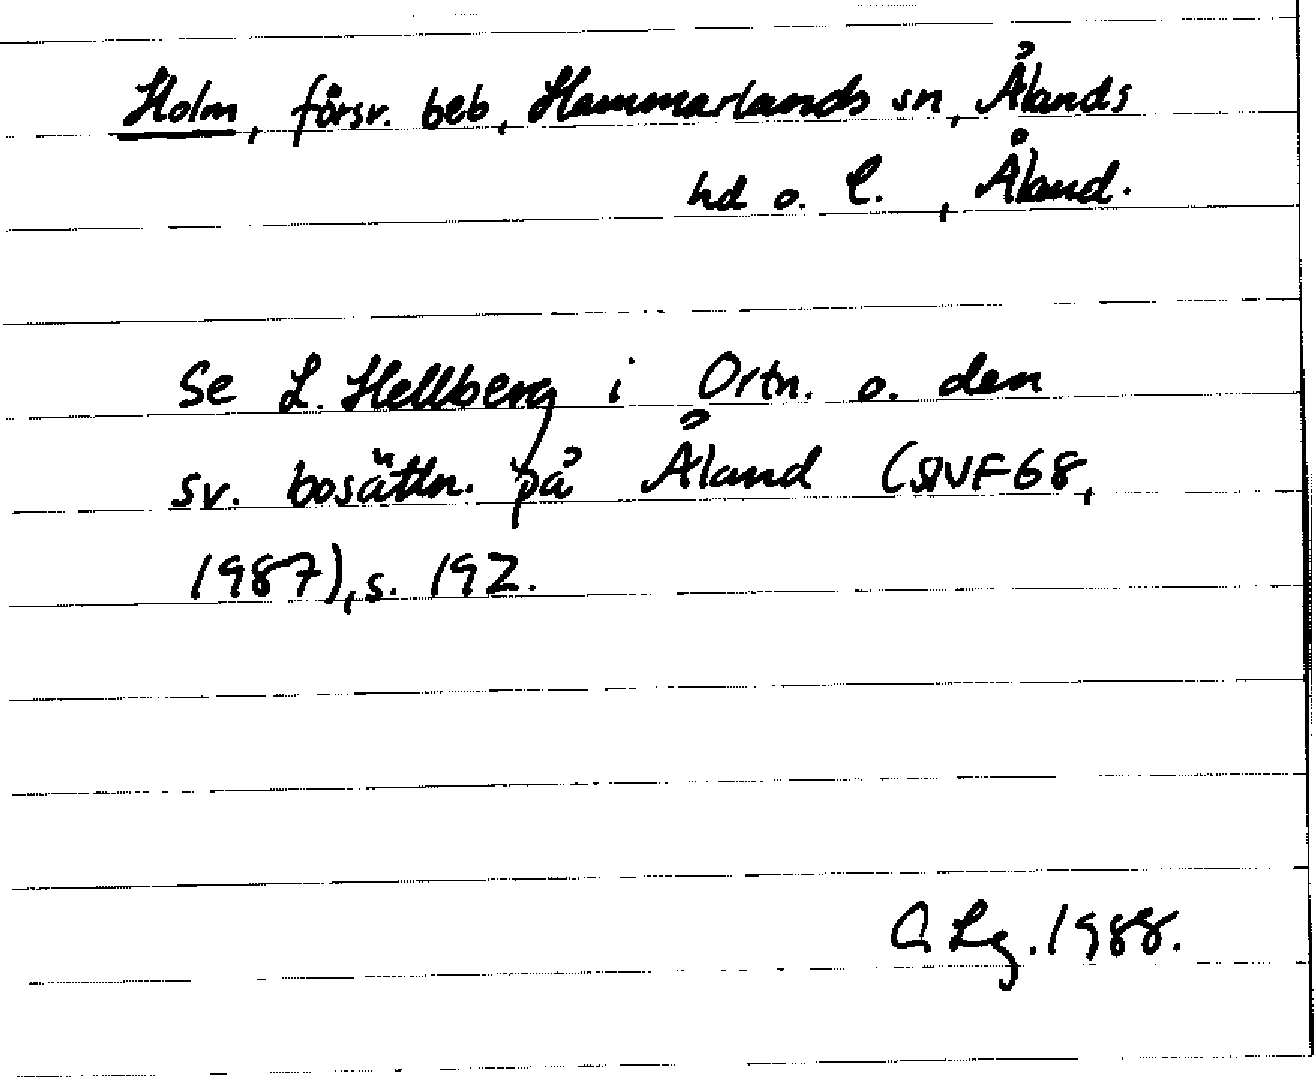 Holm, försv. beb, Hammarlands sn, Ålands
hd o. l. , Åland.
Se L. Hellberg i Ortn. o. den
sv. bosättn. på Åland (SNF68,
1987), s. 192.
A Lg. 1988.